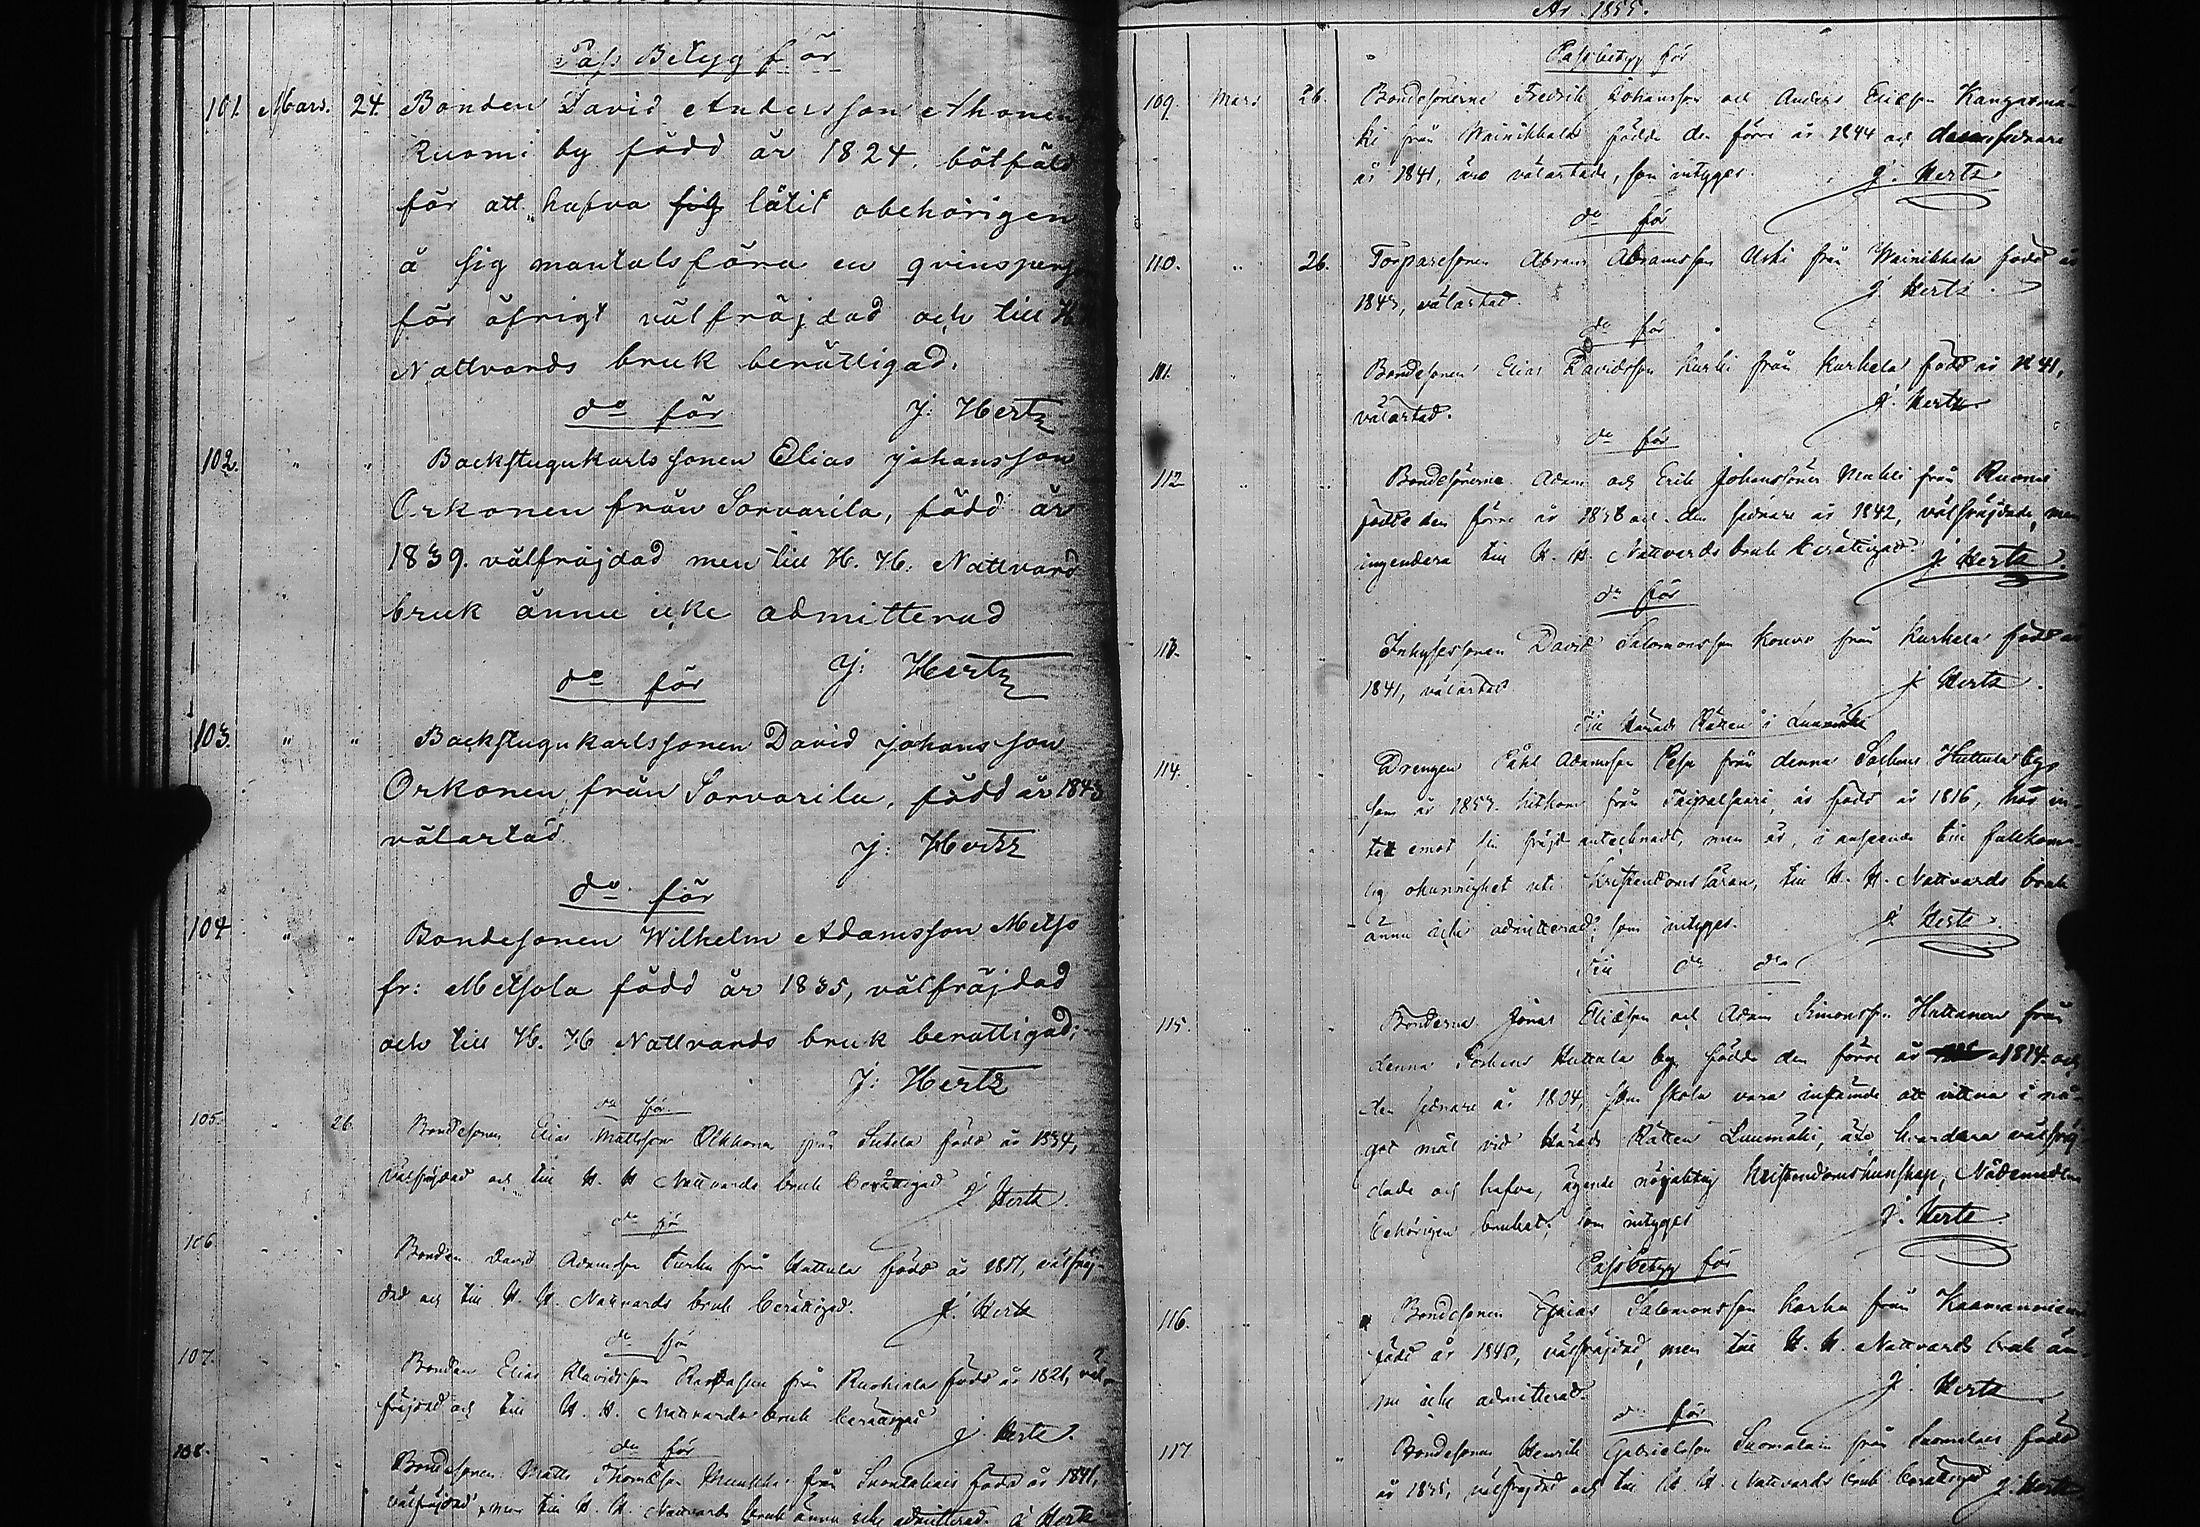 Pass Betyg för
101. Mars. 24. Bonden David Andersson Ahonen
Ruomi by född år 1824. bötfäld
för att hafva sig låtit obehörigen
å sig mantalsföra en qvinsperson
för öfrigt välfräjdad och till H.
Nattvards bruk berättigad.
do för J: Hertz
102. " " Backstugukarlssonen Elias Johansson
Orkonen från Sorvarila, född år
1839. välfräjdad men till H. H. Nattvard
bruk ännu icke admitterad
do för J: Hertz
103. " " Backstugukarlssonen David Johansson
Orkonen från Sorvarila, född år 1843
välartad. J: Hertz
do för
104 " " Bondesonen Wilhelm Adamsson Metso
fr: Metsola född år 1835, välfräjdad
och till H. H Nattvards bruk berättigad;
J: Hertz
do för
105. " 26. Bondesonen Elias Mattsson från född år 1834,
välfräjdad och till H. H Nattvards bruk berättigad J. Hertz.
do för
106 " " Bonden David Adamsson Turku från Huttula född år 1817, välfräj-
dad och till H. H. Nattvards bruk berättigad. J. Hertz
do för
107. " " Bonden Elias Davidsson från född år 1821, väl-
fräjdad och till H. H. Nattvards bruk berättigad J. Hertz.
do för
108. " " Bondesonen Matts Thomasson från Suomalais född år 1841,
välfräjdad, men till H. H. Nattvards bruk ännu icke admitterad. J Hertz
År 1855.
Passbetyg för
109. Mars 26. Bondesönerne Fredrik Johansson och Anders Ericsson Kangasmä-
ki från Wainikkala födde den förre år 1844 och den sednare
år 1841, äro välartade, som intygas. J. Hertz
do för
110. " 26. Torparesonen Abram Abramsson Uski från Wainikkala född år
1843, välartad. J. Hertz.
do för
111. Bondesonen Elias Davidsson Kurki från Kurkela född år 1841,
välartad. J. Hertz
do för
112 " " Bondesönerne Adam och Erik Johanssöner från Ruomi
födde den förre år 1838 och den sednare år 1842, välfräjdade, men
ingendera till H. H. Nattvards bruk berättigad. J. Hertz.
do för
113. " " Inhysessonen David Salomonsson Kouvo från Kurkela född år
1841, välartad. J Hertz.
Till Härads Rätten i Luumäki
114. " Drengen Påhl Adamsson Pesu från denna Sockens Huttula by,
som år 1853. hitkom från Taipalsaari, är född år 1816, har in-
tet emot sin fräjd antecknadt, men är, i anseende till fullkom-
lig okunnighet uti Kristendomsläran, till H. H. Nattvards bruk
ännu icke admitterad; som intygas. J. Hertz.
Till do do
115. " " Bönderne Jonas Eliasson och Adam Simonsson Huttunen från
denna Sockens Huttula by, födde den förre år 1814. och
den sednare år 1804, som skola vara instämde att vittna i nå-
got mål vid Härads Rätten Luumäki, äro hvardera välfräj-
dade och hafva, ägande nöjaktig Kristendomskunskap, Nådemedlen
behörigen brukat, som intygas J. Hertz
Passbetyg för
116. " Bondesonen Esaias Salomonsson Karhu från
född år 1840, välfräjdad, men till H. H. Nattvards bruk än-
nu icke admitterad. J. Hertz
do för
117 " Bondesonen Henrik Gabrielsson Suomalain från Suomalais född
år 1835, välfräjdad och till H. H. Nattvards bruk berättigad J. Hertz